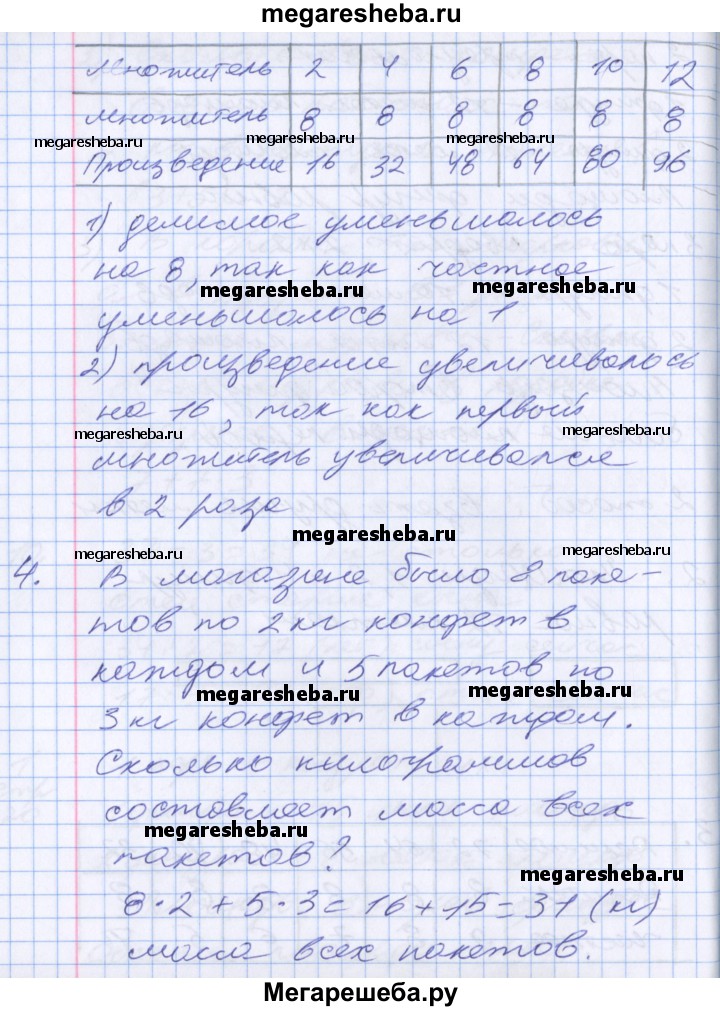 megaresheba.ru
Множитель 2 4 6 8 10 12
множитель 8 8 8 8 8 8
megaresheba.ru megaresheba.ru megaresheba.ru
Произведение 16 32 48 64 80 96
1) делимое уменьшалось
на 8, так как частное
megaresheba.ru megaresheba.ru
уменьшалось на 1
2) произведение увеличивалось
на 16, так как первый
megaresheba.ru megaresheba.ru
множитель увеличивался
в 2 раза
megaresheba.ru
megaresheba.ru megaresheba.ru
4. В магазине было 8 паке-
тов по 2 кг конфет в
каждом и 5 пакетов по
megaresheba.ru megaresheba.ru
3 кг конфет в каждом.
Сколько килограммов
составляет масса всех
megaresheba.ru
пакетов?
megaresheba.ru
8·2+5·3=16+15=31 (кг)
масса всех пакетов.
Мегарешеба.ру